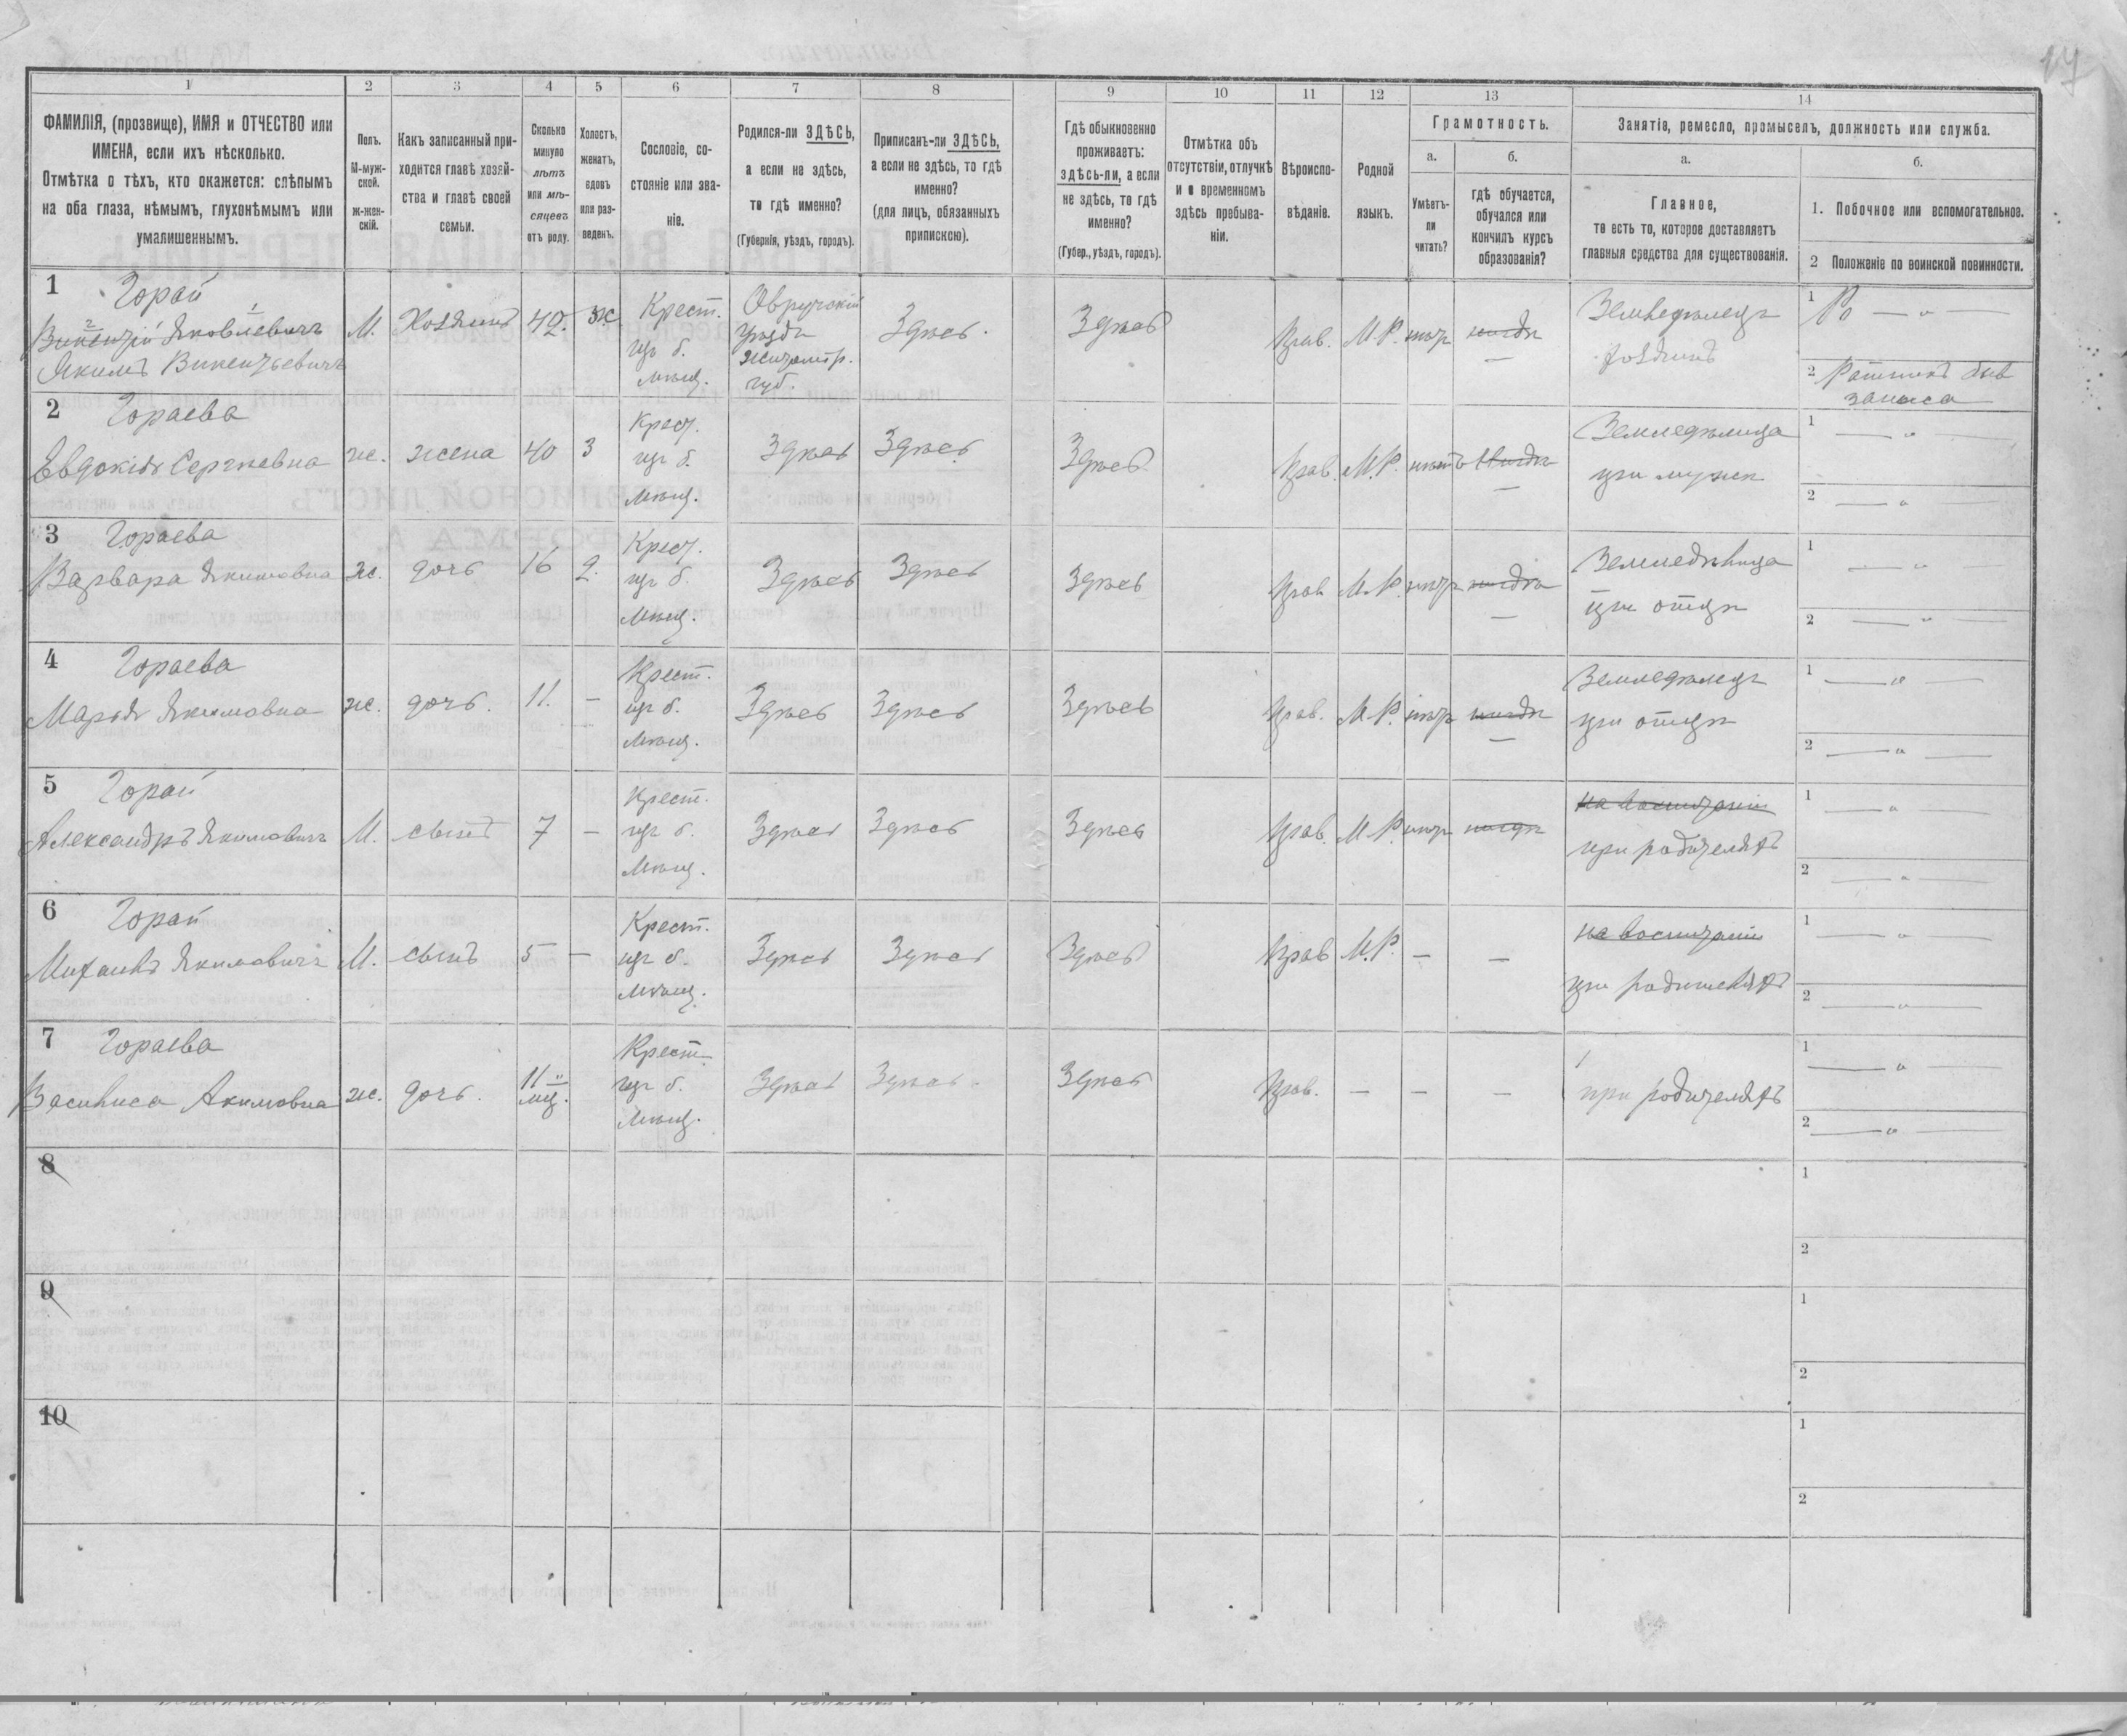 17
1 2 3 4 5 6 7 8 9 10 11 12 13 14
ФАМИЛІЯ, (прозвище), ИМЯ и ОТЧЕСТВО или
ИМЕНА, если ихъ нѣсколько.
Отмѣтка о тѣхъ, кто окажется: слѣпымъ
на оба глаза, нѣмымъ, глухонѣмымъ или
умалишеннымъ.
Полъ.
М-муж-
ской.
ж-жен-
скій.
Какъ записанный при-
ходится главѣ хозяй-
ства и главѣ своей
семьи.
Сколько
минуло
лѣтъ
или мѣ-
сяцевъ
отъ роду.
Холостъ,
женатъ,
вдовъ
или раз-
веденъ.
Сословіе, со-
стояніе или зва-
ніе.
Родился-ли ЗДѢСЬ,
а если не здѣсь,
то гдѣ именно?
(Губернія, уѣздъ, городъ).
Приписанъ-ли ЗДѢСЬ,
а если не здѣсь, то гдѣ
именно?
(для лицъ, обязанныхъ
припискою).
Гдѣ обыкновенно
проживаетъ:
здѣсь-ли, а если
не здѣсь, то гдѣ
именно?
(Губер., уѣздъ, городъ).
Отмѣтка объ
отсутствіи, отлучкѣ
и о временномъ
здѣсь пребыва-
ніи.
Вѣроиспо-
вѣданіе.
Родной
языкъ.
Грамотность.
а.
Умѣетъ-
ли
читать?
б.
гдѣ обучается,
обучался или
кончилъ курсъ
образованія?
Занятіе, ремесло, промыселъ, должность или служба.
а.
Главное,
то есть то, которое доставляетъ
главныя средства для существованія.
б.
1. Побочное или вспомогательное.
2 Положеніе по воинской повинности.
1 Горай
Викентій Яковлевичъ
Якимъ Викентьевичъ
М. Хозяинъ 42. ж
Крест.
из б.
Мѣщ.
Овручскій
уѣздъ
Житомір.
губ.
Здѣсь. Здѣсь Прав. М.Р. нѣт нигдѣ
—
Земледѣлецъ
хозяинъ
1 — " —
2 Ратникъ
запаса
2 Гораева
Евдокія Сергѣевна
ж. жена 40 З
Крест.
из б.
Мѣщ.
Здѣсь Здѣсь Здѣсь Прав. М.Р. нѣтъ Нигдѣ
—
Земледѣлица
при мужѣ
1 — " —
2 — "
3 Гораева
Варвара Якимовна
ж. дочь 16 Д.
Крест.
из б.
Мѣщ.
Здѣсь Здѣсь Здѣсь Прав М.Р. нѣт нигдѣ
—
Земледѣлица
при отцѣ
1 — " —
2 — " —
4 Гораева
Марья Якимовна
ж. дочь. 11. —
Крест.
из б.
Мѣщ.
Здѣсь Здѣсь Здѣсь Прав. М.Р. нѣт нигдѣ
—
Земледѣлецъ
при отцѣ
1 — " —
2 — " —
5 Горай
Александръ Якимовичъ
М. сынъ 7 —
Крест.
из б.
Мѣщ.
Здѣсь Здѣсь Здѣсь Прав. М.Р. нѣт нигдѣ
на воспитаніи
при родителяхъ
1 — " —
2 — " —
6 Горай
Михаилъ Якимовичъ
М. сынъ 5 —
Крест.
из б.
Мѣщ.
Здѣсь Здѣсь Здѣсь Прав М.Р. — —
на воспитаніи
при родителяхъ
1 — " —
2 — " —
7 Гораева
Василиса Акимовна
ж. дочь. 11
мц.
Крест
из б.
Мѣщ.
Здѣсь Здѣсь. Здѣсь Прав. — — —
при родителяхъ
1 — " —
2 — " —
8
1
2
9
1
2
10
1
2